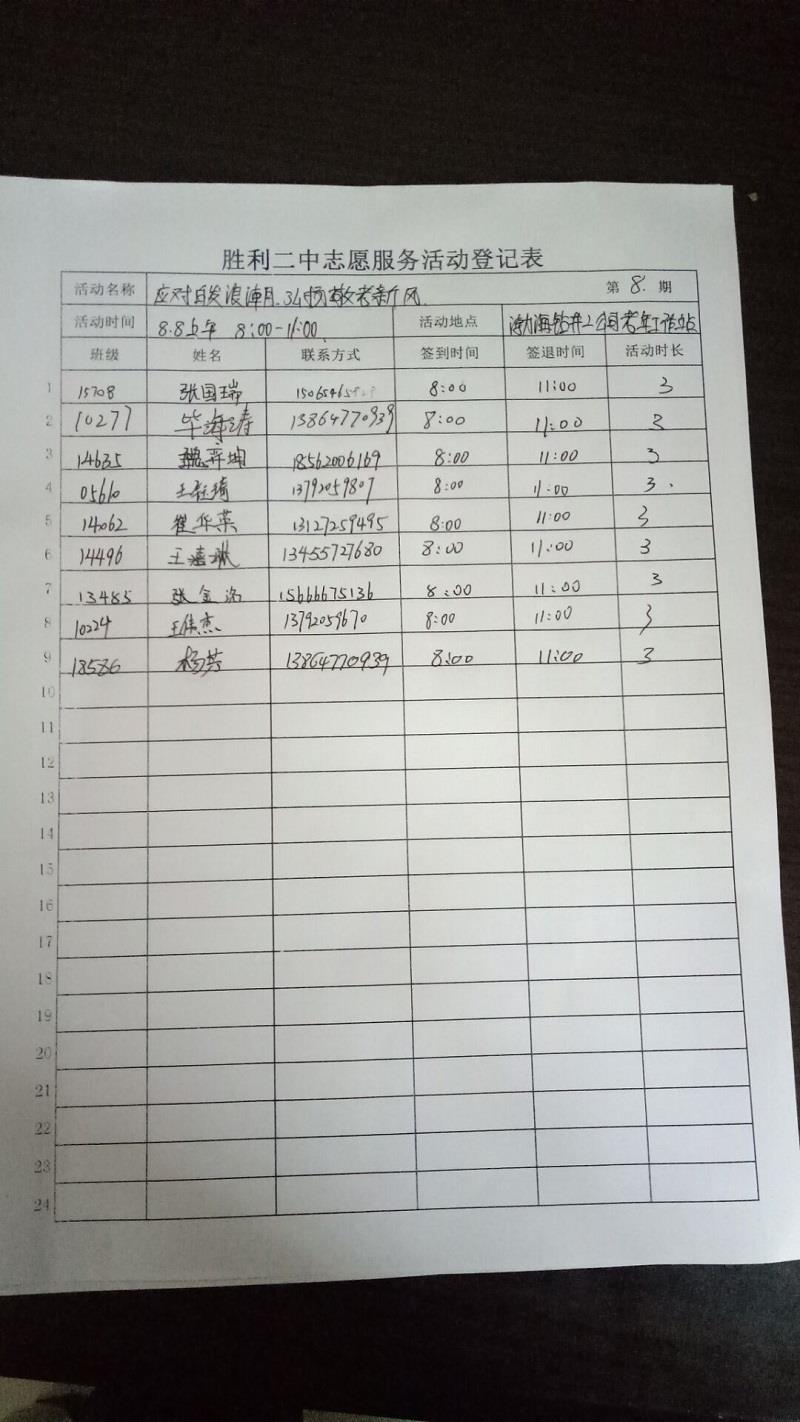 胜利二中志愿服务活动登记表
活动名称 应对白发浪潮 弘扬敬老新风 第 8. 期
活动时间 8.8上午 8:00-11:00 活动地点 渤海钻井二公司老年工作站
班级 姓名 联系方式 签到时间 签退时间 活动时长
1 15708 张国瑞 15065465 8:00 11:00 3
2 10277 毕海涛 13864770939 8:00 11:00 3
3 14635 魏弈坤 18562006169 8:00 11:00 3
4 05610 王 琦 13792059807 8:00 11:00 3
5 14062 翟华荣 13127259495 8:00 11:00 3
6 14496 王 琳 13455727680 8:00 11:00 3
7 13485 张金洛 15666675136 8:00 11:00 3
8 10224 王伟杰 13792059670 8:00 11:00 3
9 18586 杨芸 13864770939 8:00 11:00 3
10
11
12
13
14
15
16
17
18
19
20
21
22
23
24